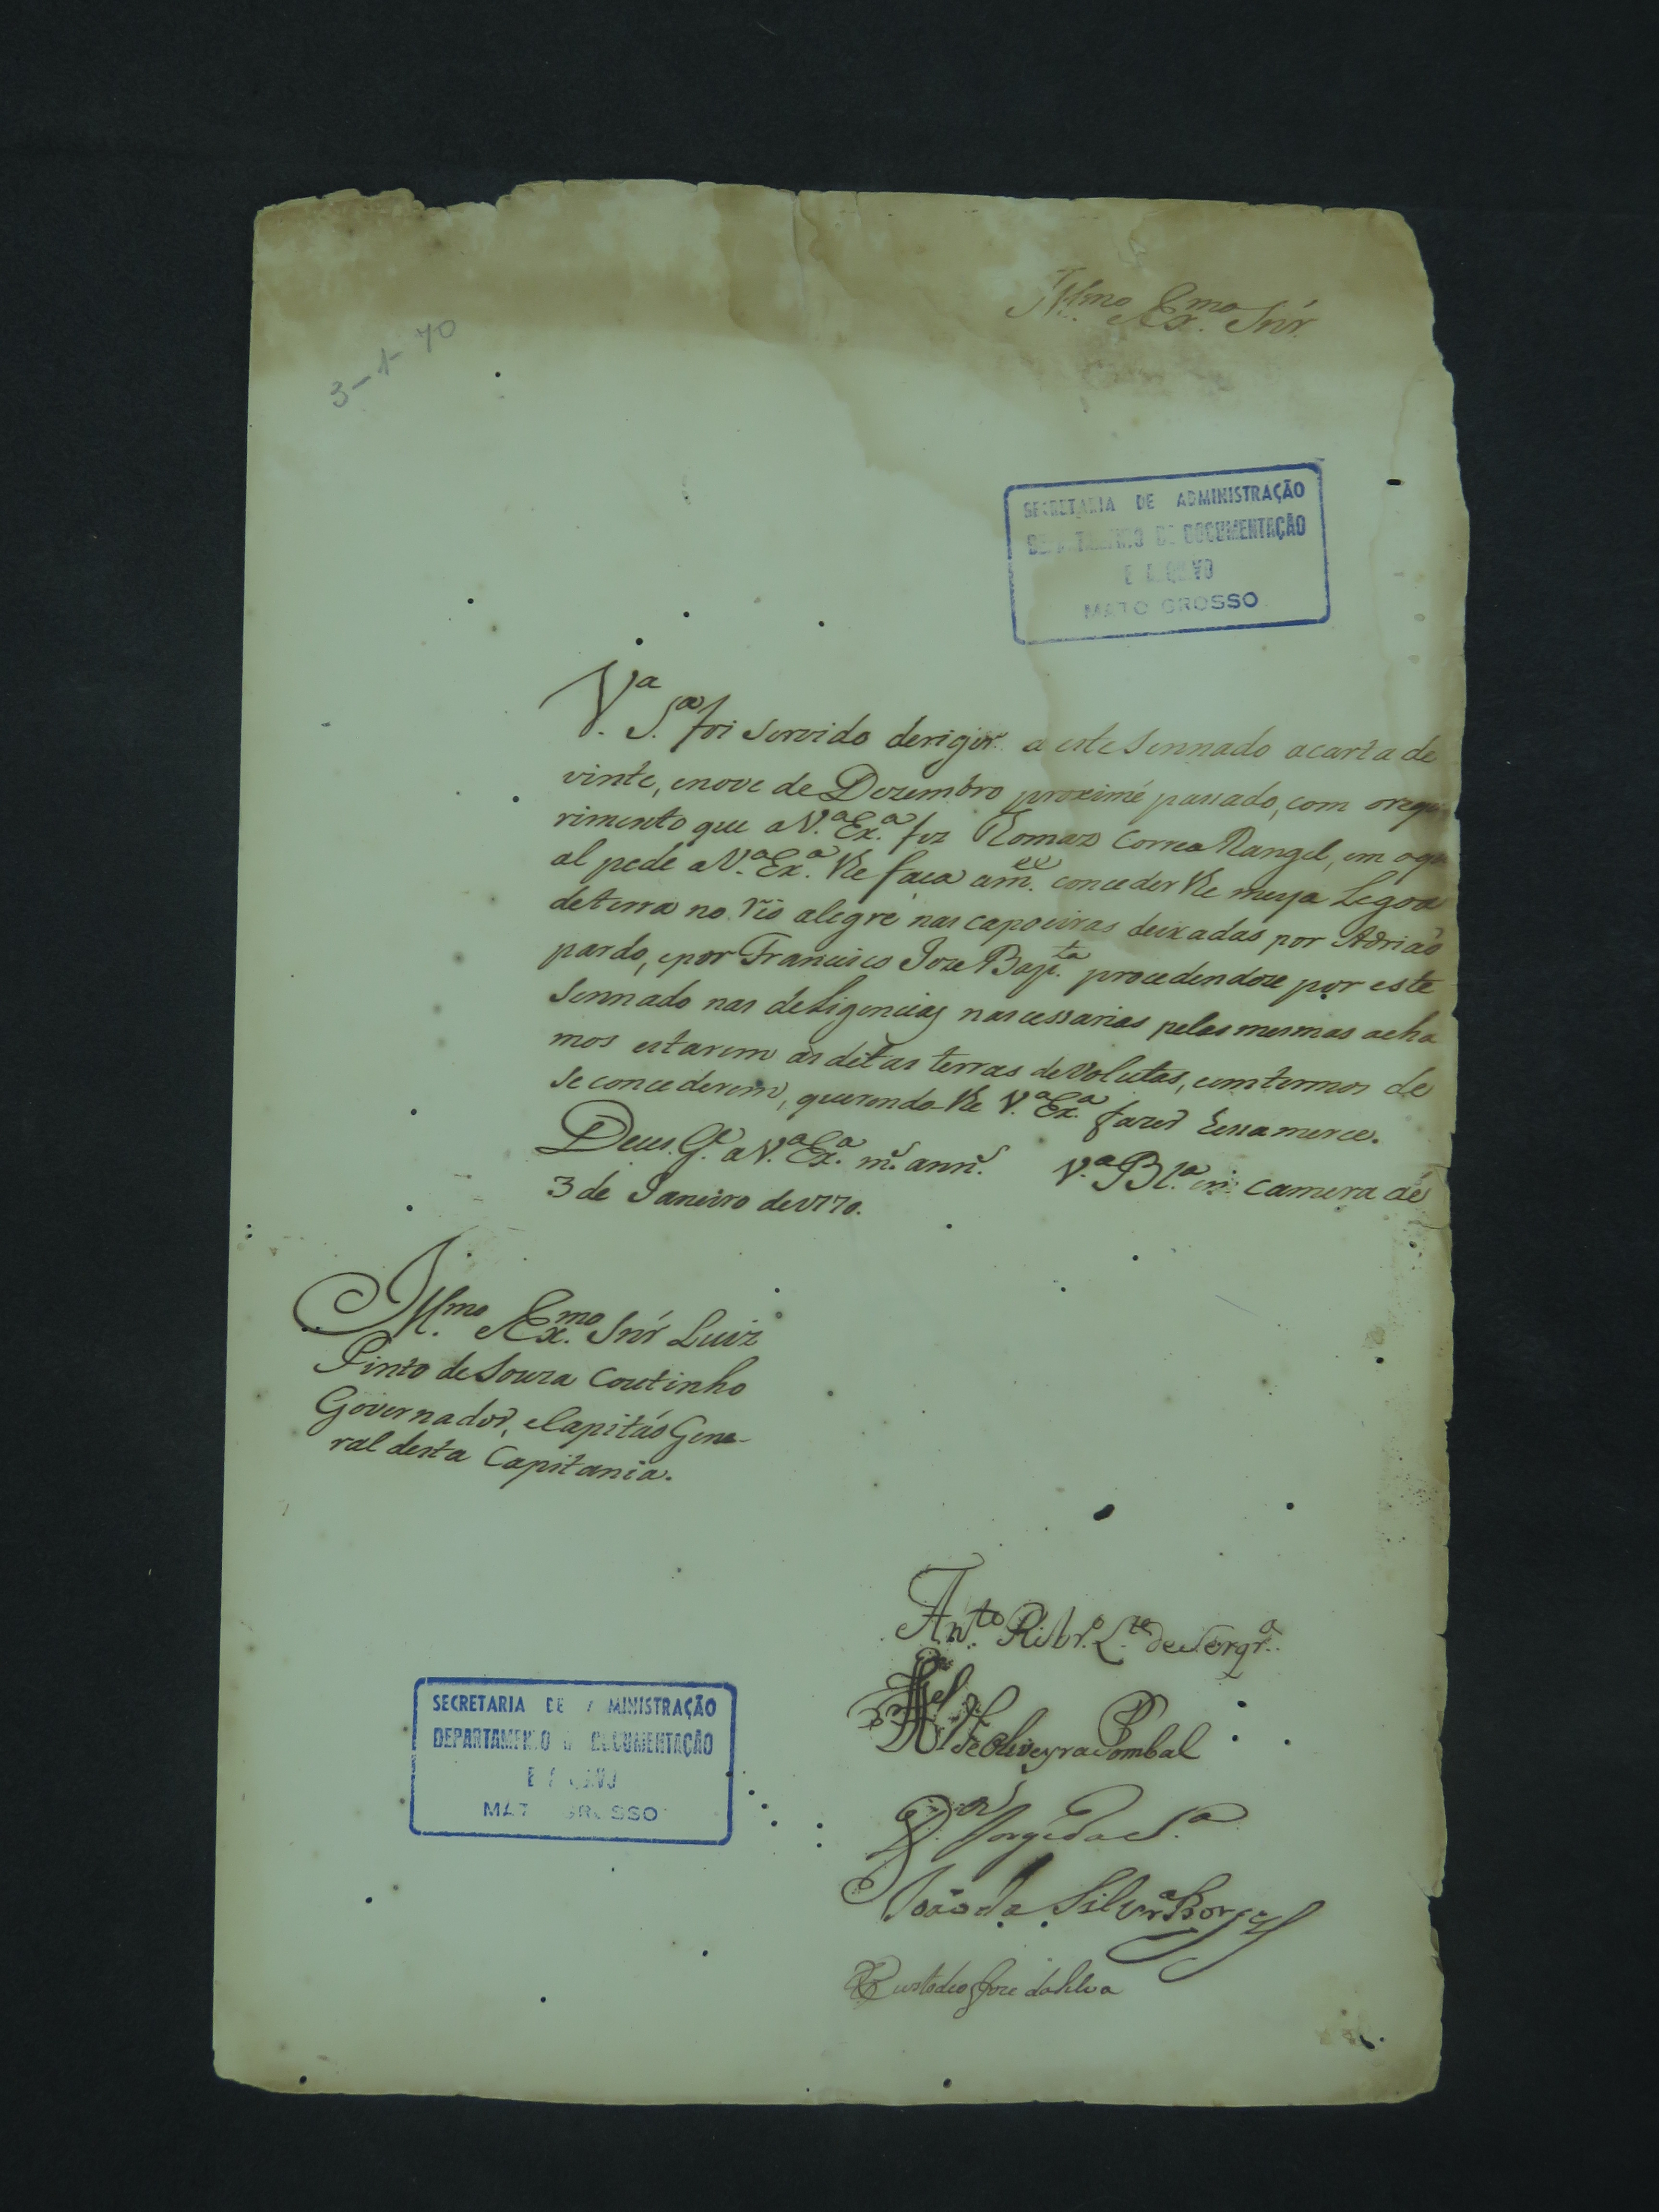 Illmo Exmo Snr.
3-1-70
SECRETARIA DE ADMINISTRAÇÃO
DEPARTAMENTO DE DOCUMENTAÇÃO
E ARQUIVO
MATO GROSSO
V.ª S.ª foi servido derigir a este Sennado acarta de
vinte, enove de Dezembro proximé passado, com oreque
rimento que aV.ª Ex.ª fez Thomaz Correa Rangel, em oqu
al pede aV.ª Ex.ª lhe faca a m.ce conceder lhe meya Legoa
deterra no rio alegre nas capoeiras deixadas por Adriaõ
pardo, epor Francisco Joze Bap.ta procedendose por este
Sennado nas deligencias nascessarias pelas mesmas acha
mos estarem as ditas terras devolutas, eemtermos de
se concederem, querendo-lhe V.ª Ex.ª fazer essa merce.
Deus G.e aV.ª Ex.ª m.s ann.s V.ª Bl.ª em camera de
3 de Janeiro de 1770.
Illmo Exmo Snr Luiz
Pinto de Souza Coutinho
Governador, eCapitaõ Gene-
ral desta Capitania.
Ant.o Ribr.o
M.el de Oliveyra Pombal
Jorge da S.ª
João da Silvr.ª Borges
Custodio Joze da Silva
SECRETARIA DE ADMINISTRAÇÃO
DEPARTAMENTO DE DOCUMENTAÇÃO
E ARQUIVO
MATO GROSSO